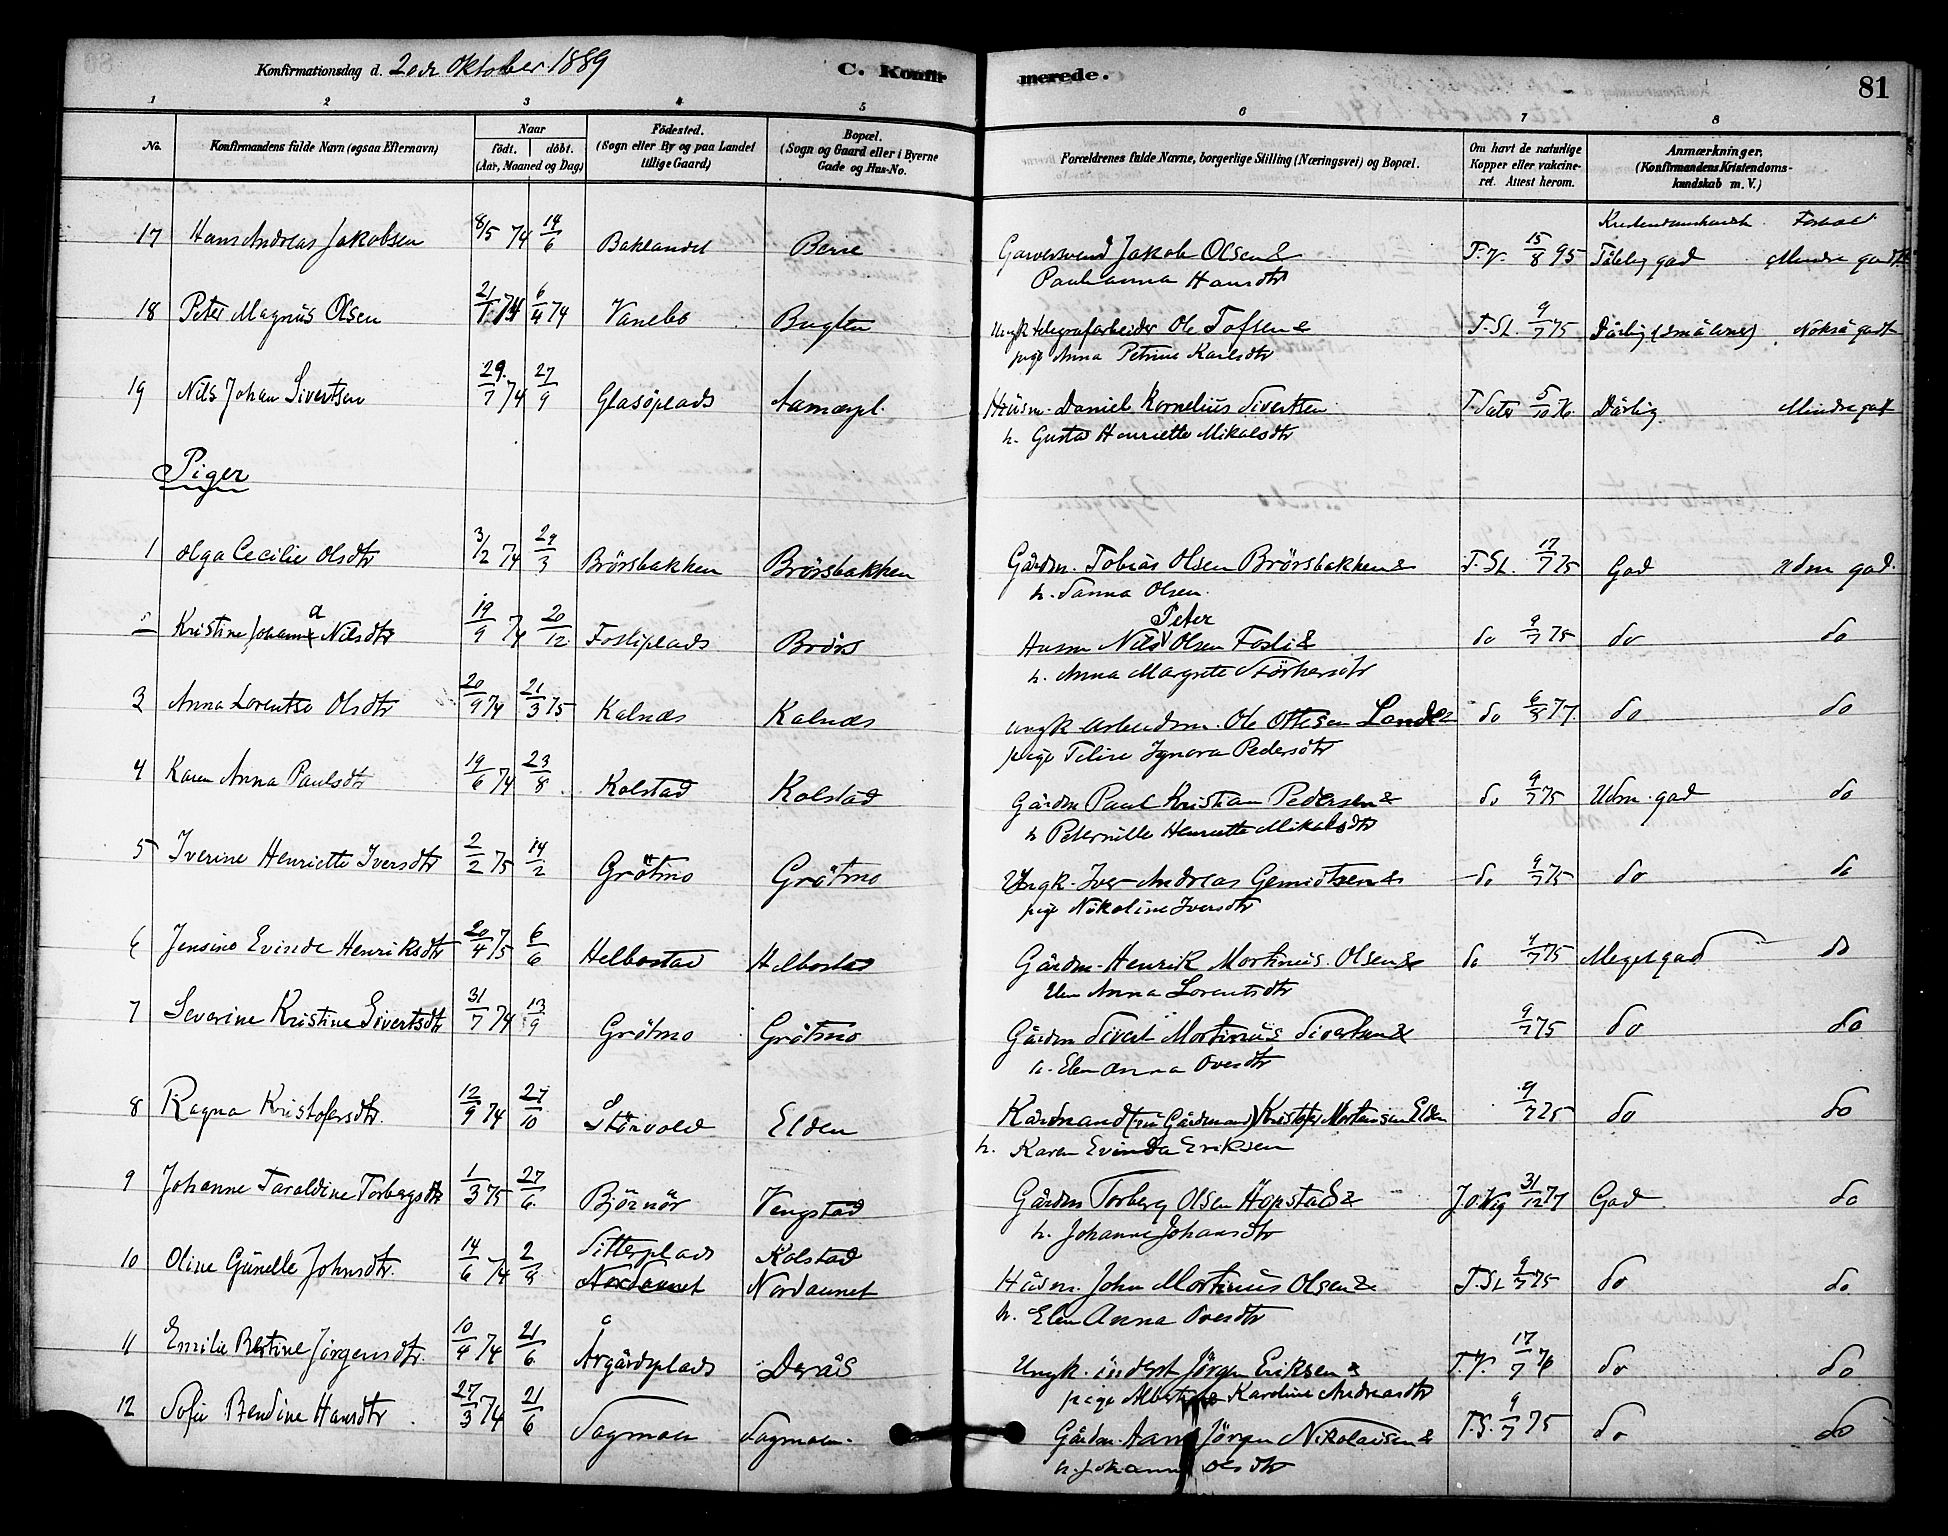 Konfirmationsdag d. 20de Oktober 1889
C. Konfirmerede.
81
1 2 3 4 5 6 7 8
No. Konfirmandens fulde Navn (ogsaa Efternavn) Naar født. døbt. (Aar, Maaned og Dag) Fødested. (Sogn eller By og paa Landet tillige Gaard) Bopæl. (Sogn og Gaard eller i Byerne Gade og Hus-No. Forældrenes fulde Navne, borgerlige Stilling (Næringsvei) og Bopæl. Om havt de naturlige Kopper eller vakcineret. Attest herom. Anmærkninger. (Konfirmandens Kristendomskundskab m. V.)
Forhold
17 Hans Andreas Jakobsen 8/5 74 14/6 Baklandet Berre Garversvend Jakob Olsen & T.V. 15/8 95 Tålelig god Mindre godt
Paulianna Hansdtr
18 Peter Magnus Olsen 21/1 74 6/4 74 Vanebo Bugten Ungk telegrafarbeider Ole Tofsen & T.St. 9/7 75 Dårlig (småevner) Nokså godt
pige Anna Petrine Karlsdtr
19 Nils Johan Sivertsen 29/7 74 27/9 Glasöplads Aamærpl. Husm. Daniel Kornelius Sivertsen 5/10 76 Dårlig Mindre godt
h. Gusta Henriette Mikalsdtr
Piger
1 Olga Cecilie Olsdtr 3/2 74 29/3 Brörsbakken Brörsbakken Gårdm. Tobias Olsen Brörsbakken & T.St. 17/7 75 God Udm god.
h. Sanna Olsen.
Kristine Johanna Nilsdtr 19/9 74 20/12 Fosliplads Brörs Husm Nils Peter Olsen Fosli & do 9/7 75 do do
h. Anna Margrete Störkersdtr
3 Anna Lorentse Olsdtr 20/9 74 21/3 75 Kalnæs Kalnæs ungk arbeidsm. Ole Ottesen Lande do 6/8 77 do do
pige Teline Ingnora Pedersdtr
4 Karen Anna Paulsdtr 19/6 74 23/8 Kolstad Kolstad Gårdm Paul Kristian Pedersen & do 9/7 75 Udm. god do
h Peternille Henriette Mikalsdtr
5 Iverine Henriette Iversdtr 2/2 75 14/2 Grötmo Grötmo Ungk. Iver Andreas Gemidtsen & do 9/7 75 do do
pige Nikoline Iversdtr
6 Jensine Evinde Henriksdtr 20/4 75 6/6 Helbostad Helbostad Gårdm. Henrik Mortinius Olsen & do 9/7 75 Meget god do
Elen Anna Lorentsdtr
7 Severine Kristine Sivertsdtr 31/7 74 13/9 Grötmo Grötmo Gårdm Sivert Mortinius Sivertsen & 9/7 75 do do
h. Elen Anna Ovesdtr
8 Ragna Kristofersdtr. 12/9 74 27/10 Störvold Elden Kårdmand (nu Gårdmand) Kristofer Mortensen Elden 9/7 75 do do
h. Karen Evinda Eriksen
9 Johanne Taraldine Torbergsdtr 1/3 75 27/6 Björnör Vengstad Gårdm Torberg Olsen Höpstad & 31/12 77 God do
h. Johanne Johansdtr
10 Oline Gunelle Johnsdtr. 14/6 74 2/8 Sitterplads Kolstad
Nordaunet Nordaunet Husm. John Mortinius Olsen & T.St 9/7 75 do do
h. Elen Anna Ovesdtr
11 Emilie Bertine Jörgensdtr. 10/4 74 21/6 Årgårdsplads Derås Ungk. inderst Jörgen Eriksen & T.V. 17/7 76 do do
pige Karoline Andreasdtr
12 Sofie Bendine Hansdtr 27/3 74 21/6 Sagmoen Sagmoen. Gårdm. Jörgen Nikolaisen & T.S. 9/7 75 do do
h. Johanna Olsdtr